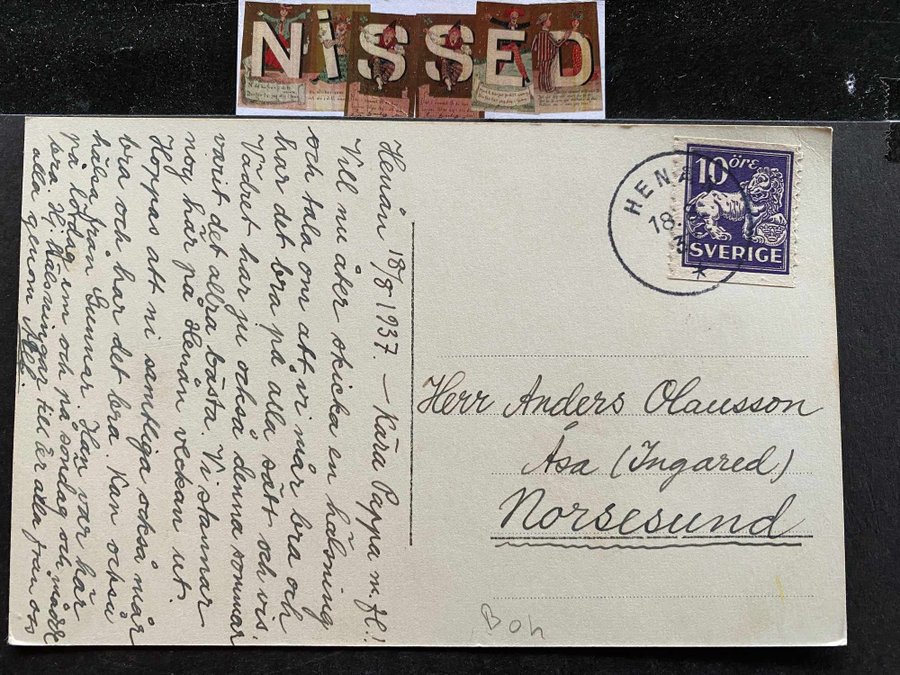 NiSSED
HENÅ
18.
10 ÖRE
SVERIGE
Henån 18/8 1937. — Kära Pappa m. fl.!
Vill nu åter skicka en hälsning
och tala om att vi mår bra och
har det bra på alla sätt och vis.
Vädret har ju också denna sommar
varit det allra bästa. Vi stannar
nog här på Henån veckan ut.
Hoppas att ni samtliga också mår
bra och har det bra. Kan också
hälsa från Gunnar. Han var här
på lördag em och på söndag och mådde
bra. Hj. Hälsningar till Er alla från oss
alla genom
Herr Anders Olausson
Åsa (Ingared)
Norsesund
Boh